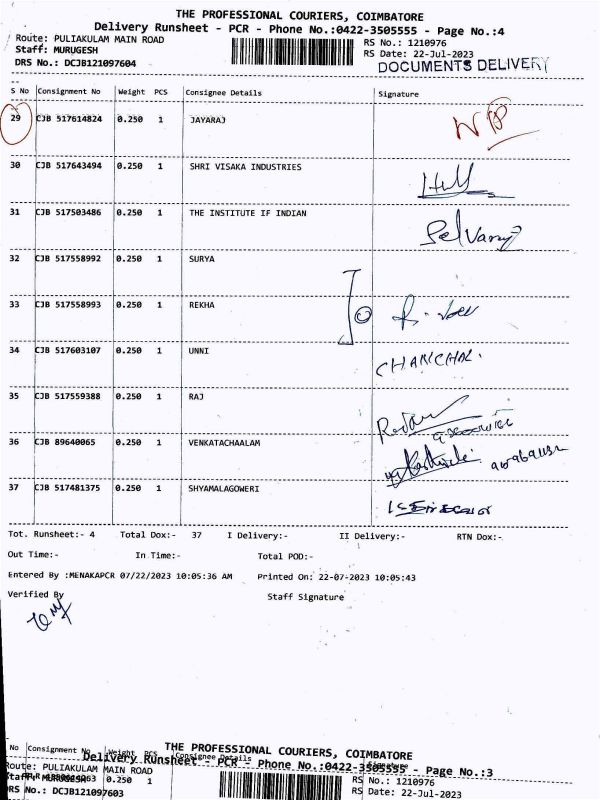 THE PROFESSIONAL COURIERS, COIMBATORE
Delivery Runsheet - PCR - Phone No.:0422-3505555 - Page No.:4
Route: PULIAKULAM MAIN ROAD
RS No.: 1210976
Staff: MURUGESH
RS Date: 22-Jul-2023
DRS No.: DCJB121097604
DOCUMENTS DELIVERY
S No Consignment No Weight PCS Consignee Details Signature
29 CJB 517614824 0.250 1 JAYARAJ
30 CJB 517643494 0.250 1 SHRI VISAKA INDUSTRIES
31 CJB 517503486 0.250 1 THE INSTITUTE IF INDIAN Selvaraj
32 CJB 517558992 0.250 1 SURYA
33 CJB 517558993 0.250 1 REKHA
34 CJB 517603107 0.250 1 UNNI CHANCHAL.
35 CJB 517559388 0.250 1 RAJ
36 CJB 89640065 0.250 1 VENKATACHAALAM
37 CJB 517481375 0.250 1 SHYAMALAGOWERI
Tot. Runsheet:- 4 Total Dox:- 37 I Delivery:- II Delivery:- RTN Dox:-
Out Time:- In Time:- Total POD:-
Entered By :MENAKAPCR 07/22/2023 10:05:36 AM Printed On: 22-07-2023 10:05:43
Verified By Staff Signature
THE PROFESSIONAL COURIERS, COIMBATORE
No Consignment No Weight PCS Consignee Details
Delivery Runsheet - PCR - Phone No.:0422-3505555 - Page No.:3
Route: PULIAKULAM MAIN ROAD
RS No.: 1210976
Staff: MURUGESH 0.250 1
DRS No.: DCJB121097603
RS Date: 22-Jul-2023